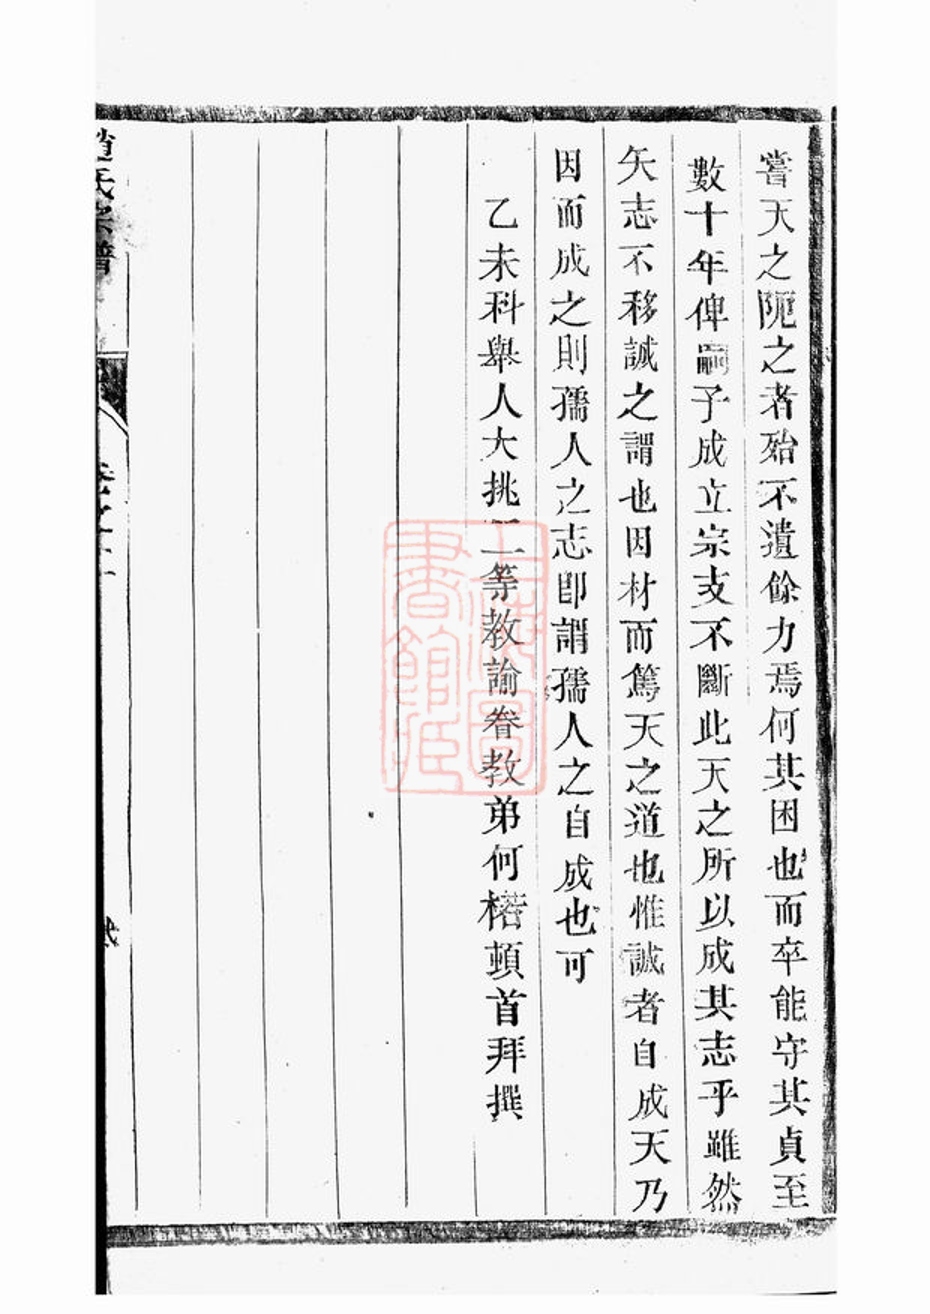 嘗天之阨之者殆不遺餘力焉何其困也而卒能守其貞至
數十年俾嗣子成立宗支不斷此天之所以成其志乎雖然
矢志不移誠之謂也因材而篤天之道也惟誠者自成天乃
因而成之則孺人之志卽謂孺人之自成也可
乙未科舉人大挑二等教諭眷教弟何楛頓首拜撰
趙氏宗譜